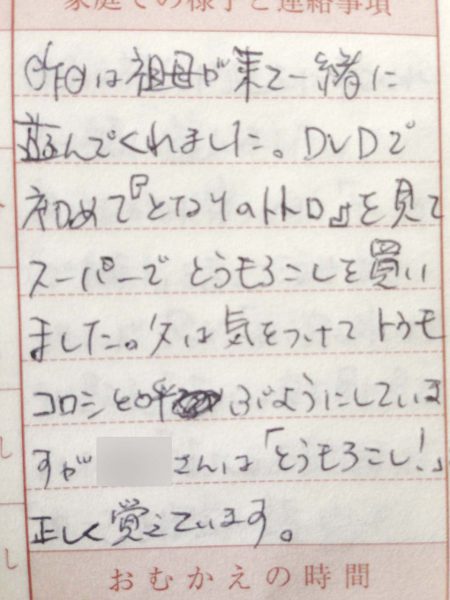 家庭での様子と連絡事項
昨日は祖母が来て一緒に
遊んでくれました。DVDで
初めて『となりのトトロ』を見て
スーパーでとうもろこしを買い
ました。父は気をつけてトウモ
コロシと呼ぶようにしていま
すが
さんは「とうもろこし!」
正しく覚えています。
おむかえの時間
し
し